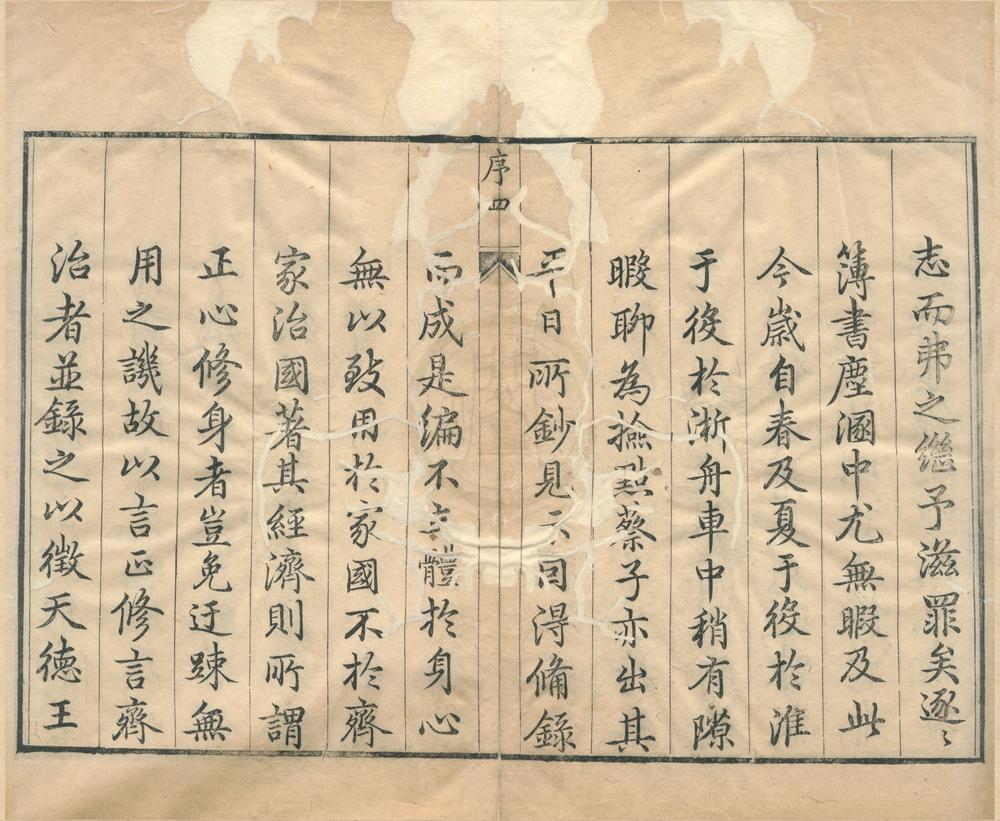 志而弗之繼予滋罪矣逐〻
簿書塵溷中尤無暇及此
今歲自春及夏于役於淮
于役於浙舟車中稍有隙
暇聊為撿點蔡子亦出其
平日所鈔見示同得備錄
序四
而成是編不立體於身心
無以致用於家國不於齊
家治國著其經濟則所謂
正心修身者豈免迂踈無
用之譏故以言正修言齊
治者並錄之以徵天德王